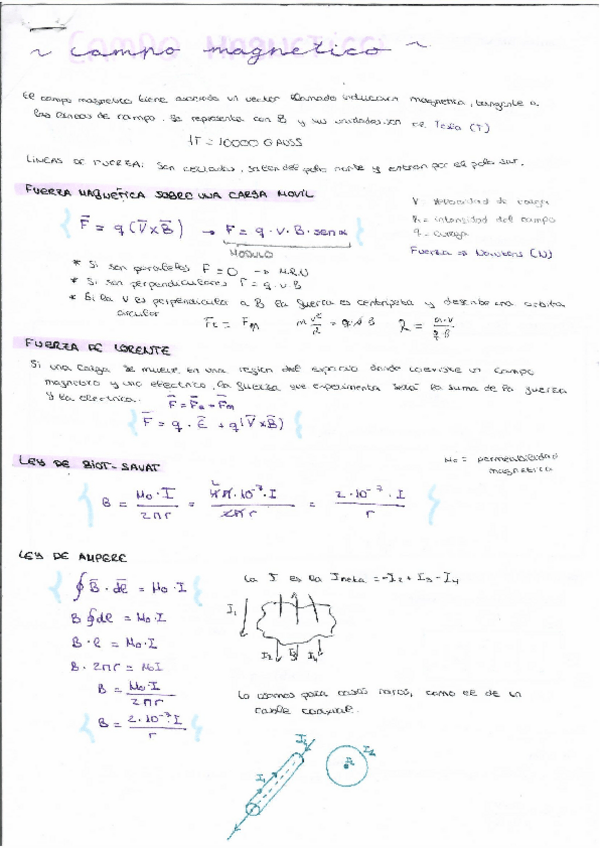 ~ campo magnetico ~
El campo magnetico tiene asociado un vector llamado induccion magnetica, tangente a
las lineas de campo. Se representa con B y sus unidades son el Tesla (T)
1T = 10000 GAUSS
LINEAS DE FUERZA: Son cerradas, salen del polo norte y entran por el polo sur.
FUERZA MAGNÉTICA SOBRE UNA CARGA MOVIL
F = q (V x B) → F = q · v · B · sen α
MODULO
V = velocidad de carga
B = intensidad del campo
q = carga
Fuerza ⇒ Newtons (N)
* Si son paralelos F = 0 → M.R.U
* Si son perpendiculares F = q · v · B
* Si la V es perpendicular a B la fuerza es centripeta y describe una orbita
circular
Fc = Fm m v²/R = q · v · B R = m·v / q·B
FUERZA DE LORENTE
Si una carga se mueve en una region del espacio donde coexiste un campo
magnetico y uno electrico, la fuerza que experimenta será la suma de la fuerza
y la electrica. F = Fe + Fm
F = q · E + q(V x B)
LEY DE BIOT-SAVAT
Mo = permeabilidad magnetica
B = Mo · I / 2πr = 4π·10⁻⁷·I / 2πr = 2·10⁻⁷·I / r
LEY DE AMPERE
∮ B · dl = Mo · I
La I es la I neta = -I2 + I3 - I4
B ∮ dl = Mo · I
I1
B · l = Mo · I
I2 I3 I4
B · 2πr = MoI
B = Mo · I / 2πr
Lo usamos para casos raros, como el de un
cable coaxial.
B = 2·10⁻⁷·I / r
I2
I1
I2